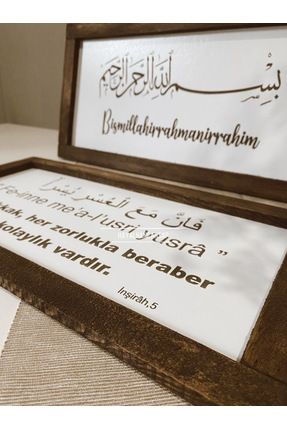 بِسْمِ اللَّهِ الرَّحْمَنِ الرَّحِيمِ
Bismillahirrahmanirrahim
فَإِنَّ مَعَ الْعُسْرِ يُسْرًا
me'a-l usrâ ”
her zorlukla beraber
kolaylık vardır.
İnşirâh,5